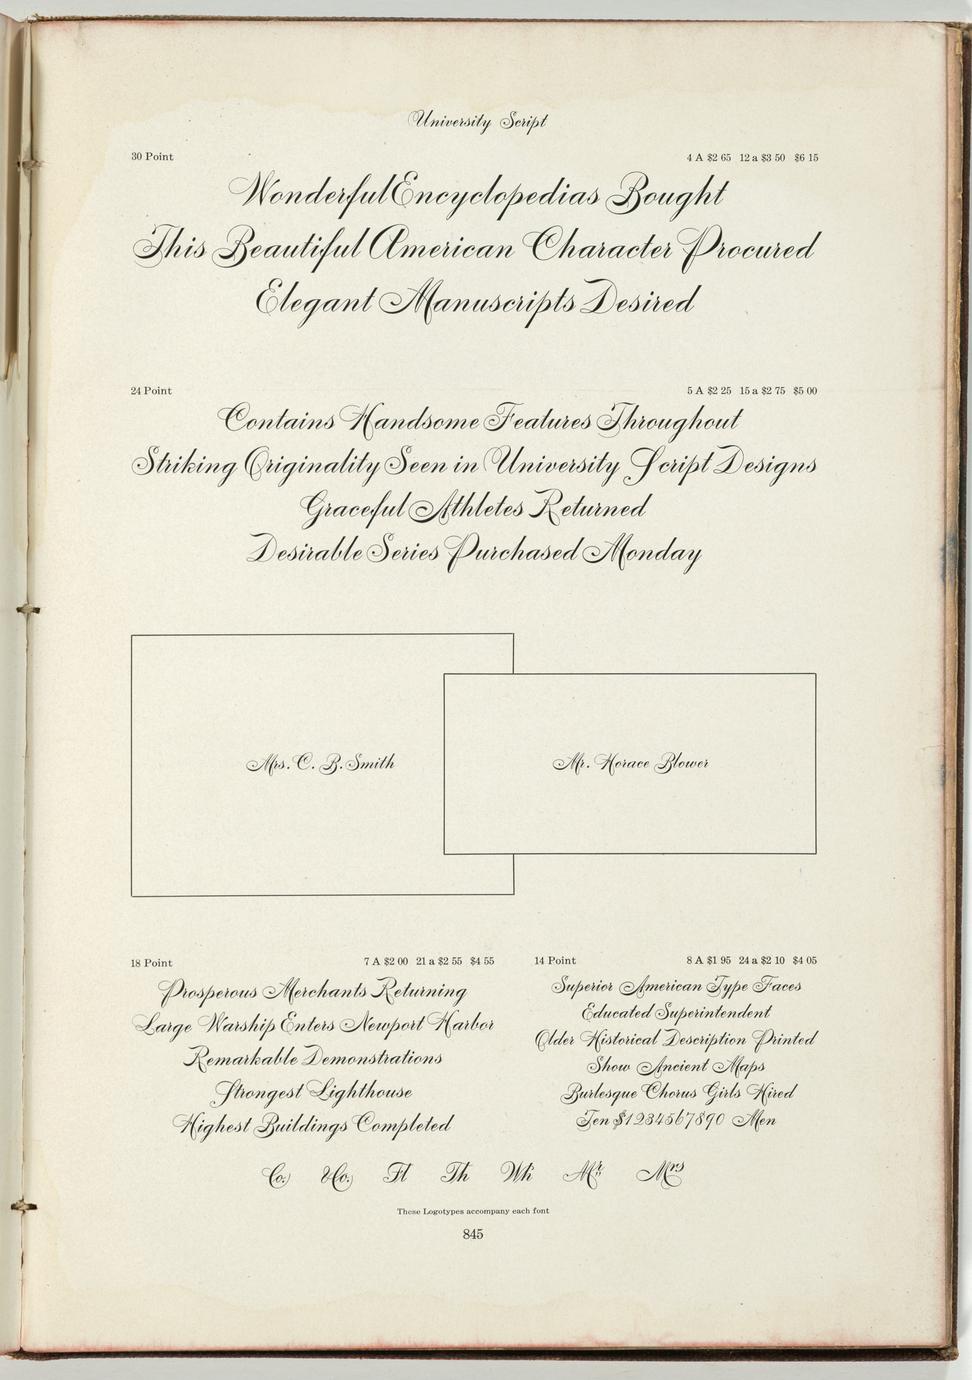 University Script
30 Point 4 A $2 65 12 a $3 50 $6 15
Wonderful Encyclopedias Bought
This Beautiful American Character Procured
Elegant Manuscripts Desired
24 Point 5 A $2 25 15 a $2 75 $5 00
Contains Handsome Features Throughout
Striking Originality Seen in University Script Designs
Graceful Athletes Returned
Desirable Series Purchased Monday
Mrs. C. B. Smith
Mr. Horace Blower
18 Point 7 A $2 00 21 a $2 55 $4 55
Prosperous Merchants Returning
Large Warship Enters Newport Harbor
Remarkable Demonstrations
Strongest Lighthouse
Highest Buildings Completed
14 Point 8 A $1 95 24 a $2 10 $4 05
Superior American Type Faces
Educated Superintendent
Older Historical Description Printed
Show Ancient Maps
Burlesque Chorus Girls Hired
Ten $1234567890 Men
Co. &Co. Ft Th Wh Mr Mrs
These Logotypes accompany each font
845